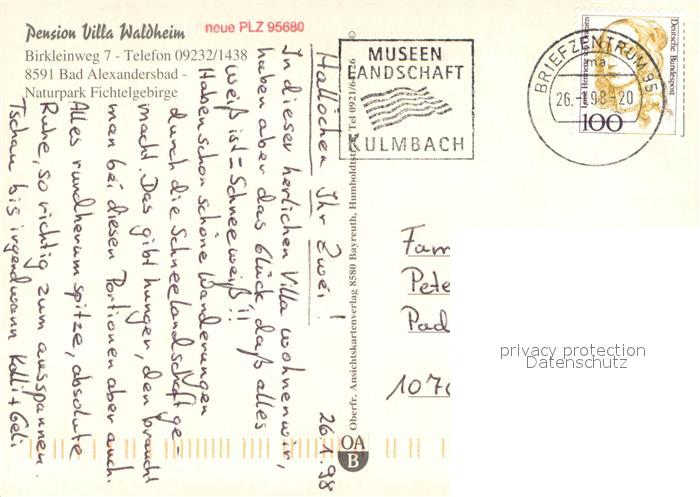 Pension Villa Waldheim
neue PLZ 95680
Birkleinweg 7 - Telefon 09232/1438
8591 Bad Alexandersbad -
Naturpark Fichtelgebirge
MUSEEN
LANDSCHAFT
KULMBACH
BRIEFZENTRUM 95
ma
26.-1.98-20
Deutsche Bundespost
100
Hallöchen Ihr Zwei! 26.1.98
In dieser herlichen Villa wohnen wir,
haben aber das Glück, daß alles
weiß ist = Schneeweiß!!
Haben schon schöne Wanderungen
durch die Schneelandschaft ge-
macht. Das gibt hunger, den braucht
man bei diesen Portionen aber auch.
Alles rundherum spitze, absolute
Ruhe, so richtig zum ausspannen.
Tschau bis irgendwann Kalli + Geli
Oberfr. Ansichtskartenverlag 8580 Bayreuth, Humboldtstr. Tel 0921/64126 ©
OA
B
Fam
Pete
Pad
1070
privacy protection
Datenschutz